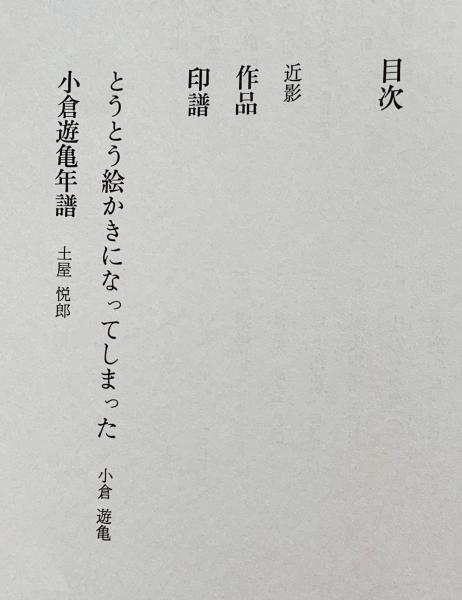 目次
近影
作品
印譜
とうとう絵かきになってしまった 小倉 遊亀
小倉遊亀年譜 土屋 悦郎